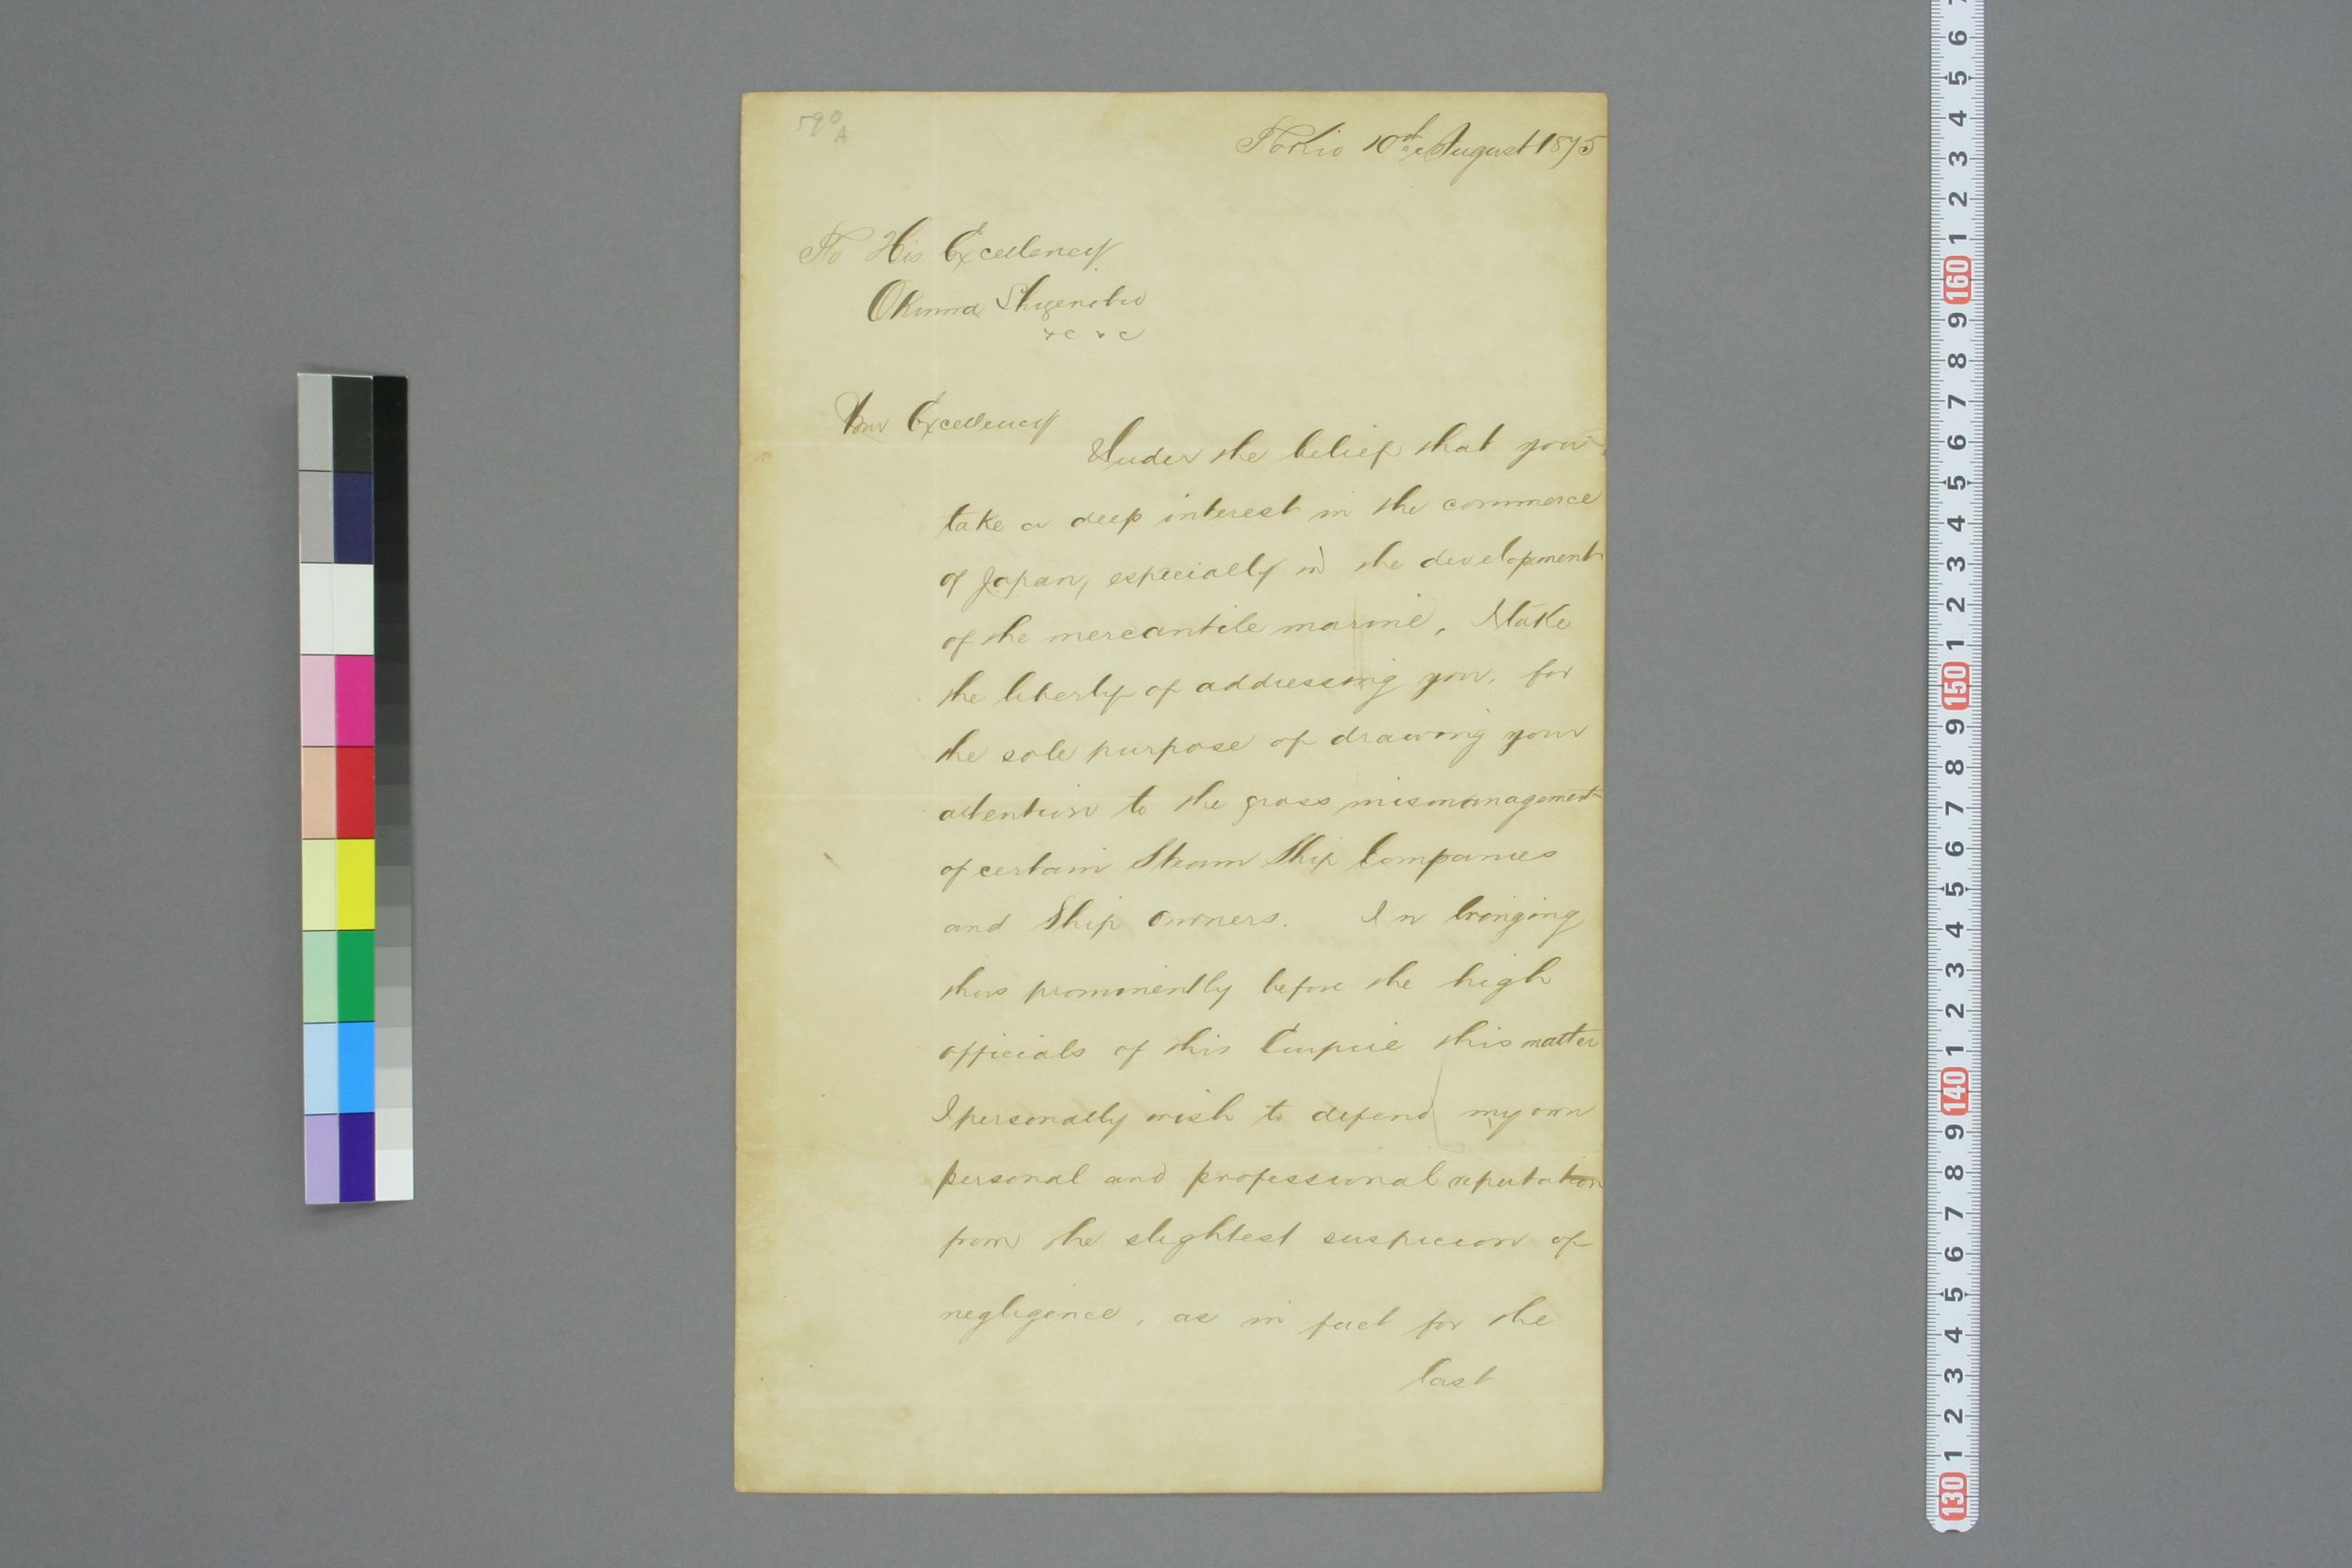 590
A
Tokio 10th August 1875
To His Excellency
Okuma Shigenobu
&c &c
Your Excellency
Under the belief that you
take a deep interest in the commerce
of Japan, especially in the development
of the mercantile marine, I take
the liberty of addressing you, for
the sole purpose of drawing your
attention to the gross mismanagement
of certain Steam Ship Companies
and Ship owners. In bringing
thus prominently before the high
officials of this Empire this matter
I personally wish to defend my own
personal and professional reputation
from the slightest suspicion of
negligence, as in fact for the
last
7
6
5
4
3
2
1
160
9
8
7
6
5
4
3
2
1
150
9
8
7
6
5
4
3
2
1
140
9
8
7
6
5
4
3
2
1
130